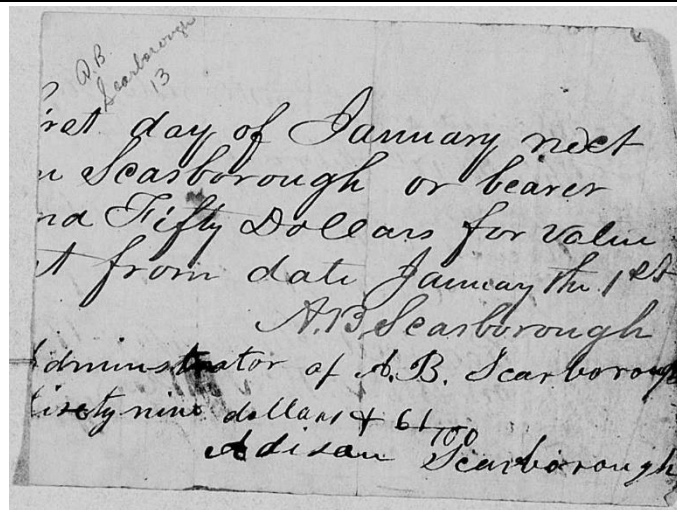 A.B.
Scarborough
13
rst day of January next
n Scarborough or bearer
nd Fifty Dollars for Value
t from date January the 1st
A.B Scarborough
dminstrator of A.B. Scarborough
ixty nine dollars & 61/100
Adison Scarborough